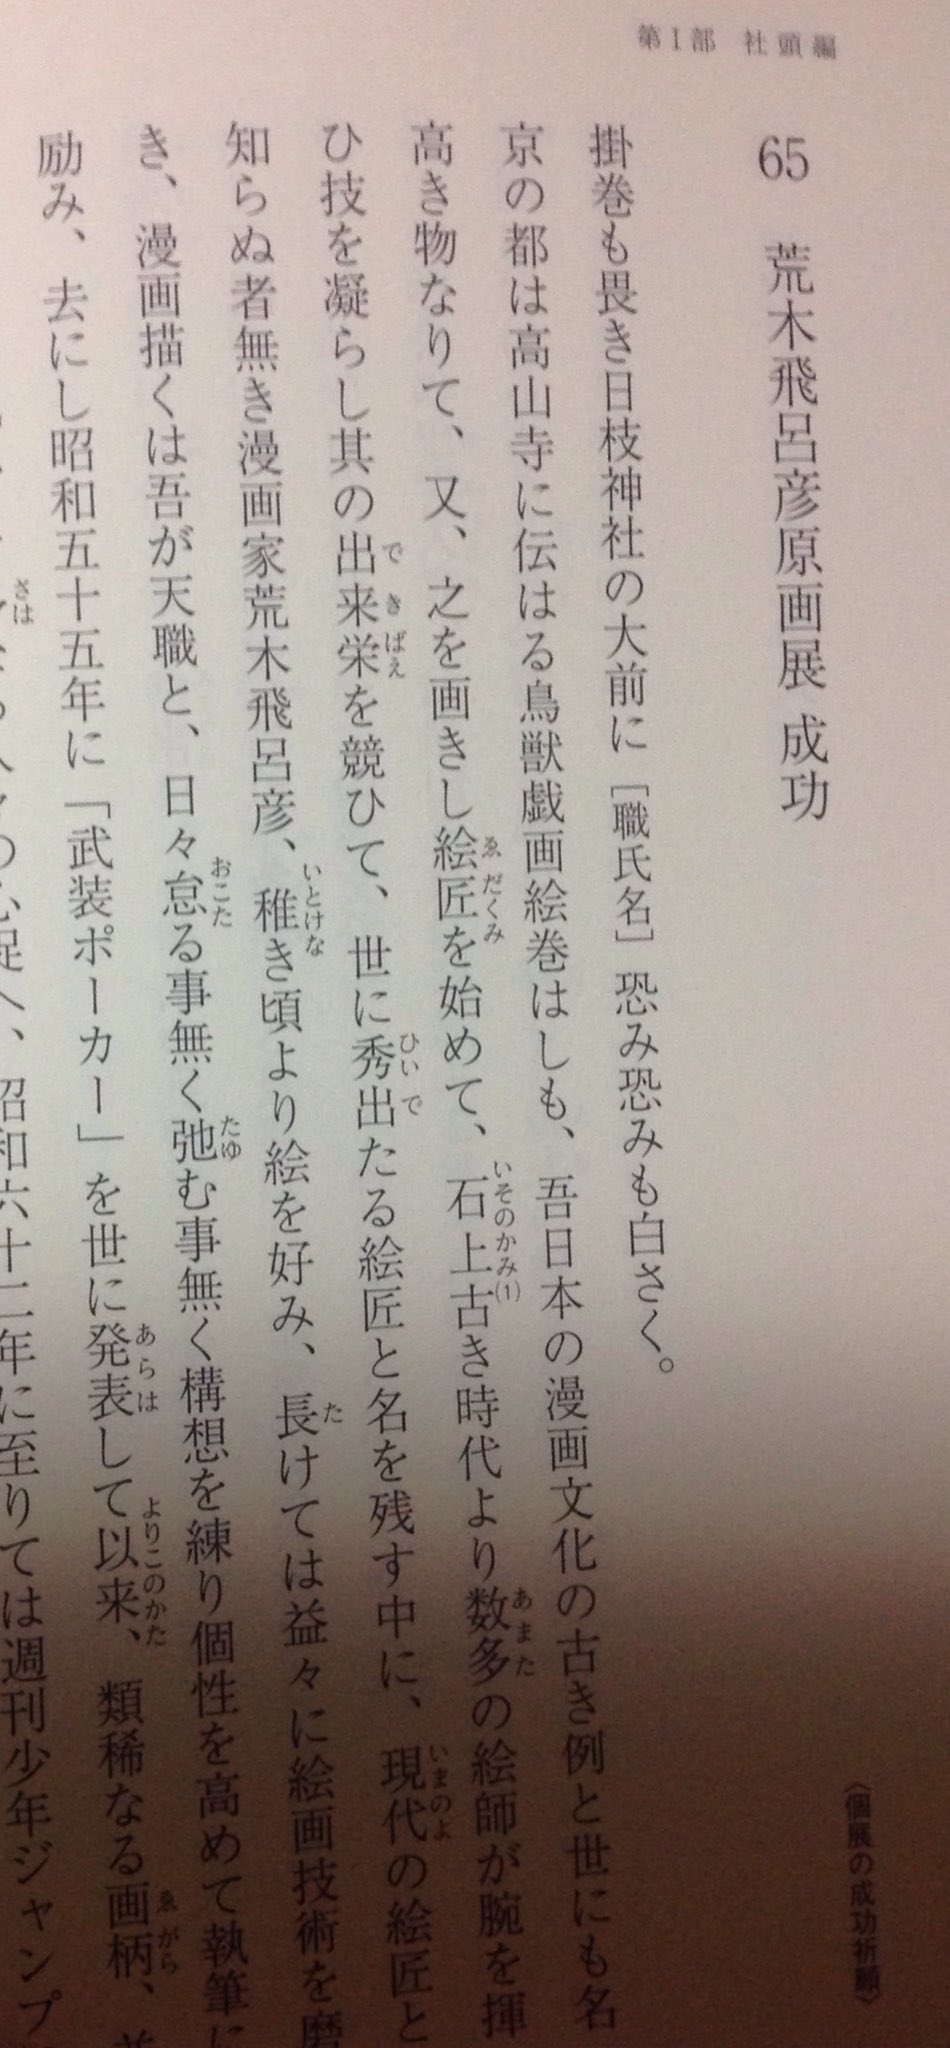 第Ⅰ部　社頭編
65　荒木飛呂彦原画展 成功
〈個展の成功祈願〉
掛巻も畏き日枝神社の大前に［職氏名］恐み恐みも白さく。
京の都は高山寺に伝はる鳥獣戯画絵巻はしも、吾日本の漫画文化の古き例と世にも名
高き物なりて、又、之を画きし絵匠を始めて、石上古き時代より数多の絵師が腕を揮
ひ技を凝らし其の出来栄を競ひて、世に秀出たる絵匠と名を残す中に、現代の絵匠と
知らぬ者無き漫画家荒木飛呂彦、稚き頃より絵を好み、長けては益々に絵画技術を磨
き、漫画描くは吾が天職と、日々怠る事無く弛む事無く構想を練り個性を高めて執筆に
励み、去にし昭和五十五年に「武装ポーカー」を世に発表して以来、類稀なる画柄、
昭和六十二年に至りては週刊少年ジャンプ